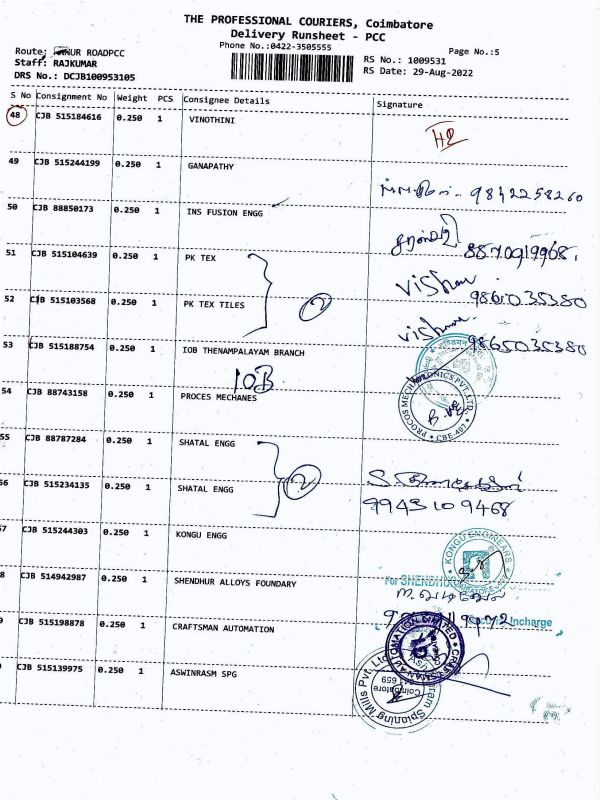 THE PROFESSIONAL COURIERS, Coimbatore
Delivery Runsheet - PCC
Phone No.:0422-3505555
Page No.:5
Route: ROADPCC
Staff: RAJKUMAR
DRS No.: DCJB100953105
RS No.: 1009531
RS Date: 29-Aug-2022
S No Consignment No Weight PCS Consignee Details Signature
48 CJB 515184616 0.250 1 VINOTHINI
49 CJB 515244199 0.250 1 GANAPATHY
9842258260
50 CJB 88850173 0.250 1 INS FUSION ENGG
8870919968
51 CJB 515104639 0.250 1 PK TEX
52 CJB 515103568 0.250 1 PK TEX TILES 2
9865035380
53 CJB 515188754 0.250 1 IOB THENAMPALAYAM BRANCH
IOB
54 CJB 88743158 0.250 1 PROCES MECHANES
PROCOS MECHATRONICS PVT.LTD. CBE-407
55 CJB 88787284 0.250 1 SHATAL ENGG
56 CJB 515234135 0.250 1 SHATAL ENGG 2
9943109468
57 CJB 515244303 0.250 1 KONGU ENGG
KONGU ENGINEERS
8 CJB 514942987 0.250 1 SHENDHUR ALLOYS FOUNDARY
For SHENDHUR
Incharge
9 CJB 515198878 0.250 1 CRAFTSMAN AUTOMATION
CRAFTSMAN AUTOMATION LIMITED
CJB 515139975 0.250 1 ASWINRASM SPG
Spinning Mills Pvt. Ltd
Coimbatore